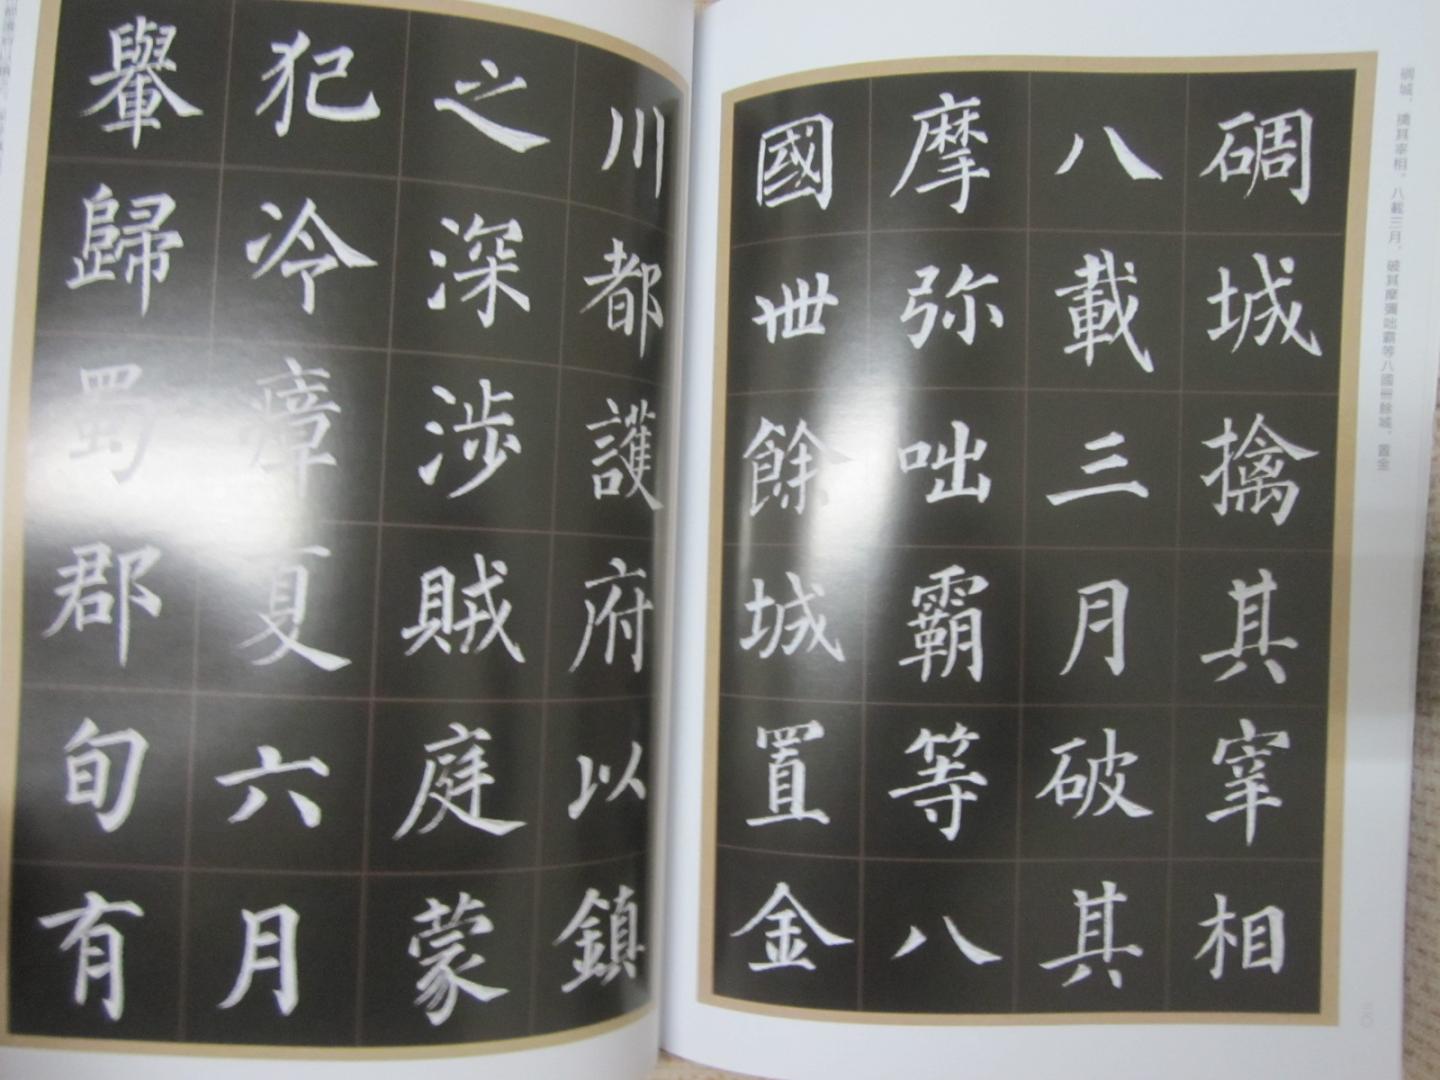 碉城擒其宰相
八載三月破其
摩弥咄霸等八
國卌餘城置金
川都護府以鎮
之深涉賊庭蒙
犯冷瘴夏六月
轝歸蜀郡旬有
碉城，擒其宰相。八載三月，破其摩彌咄霸等八國卌餘城，置金